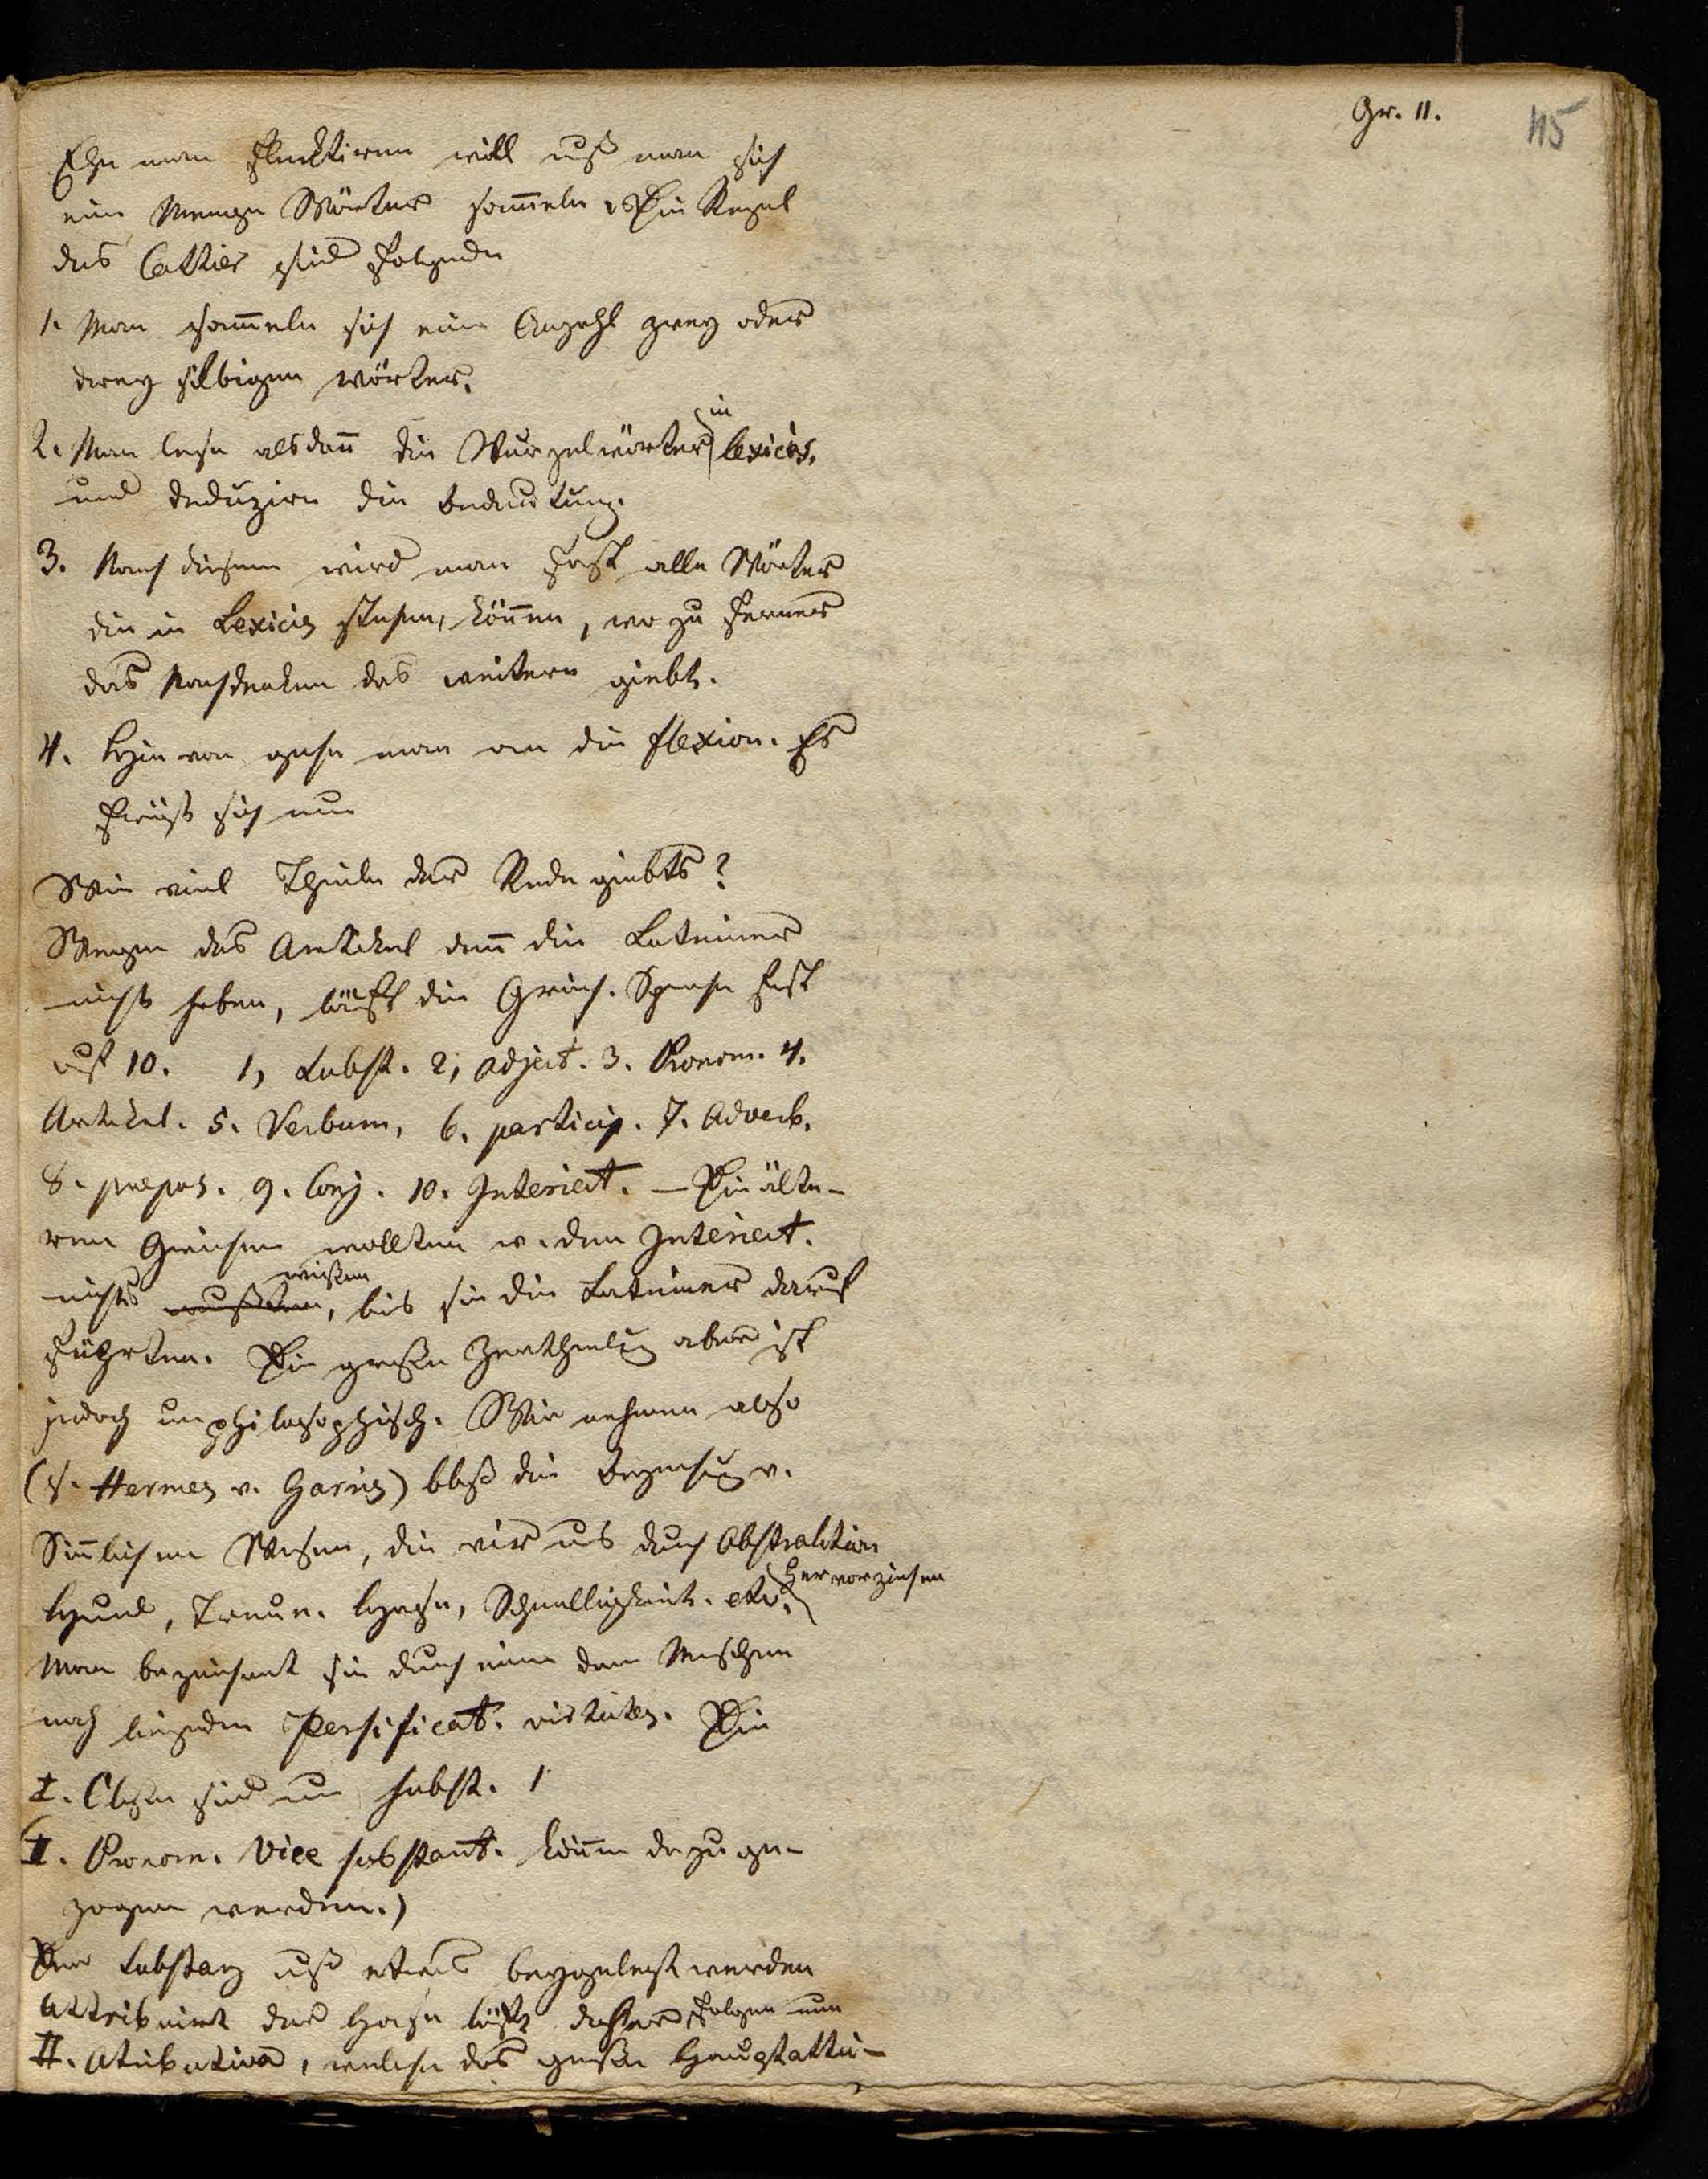 Gr. 11.
115
Ehe man flecktiren will muß man sich
eine Menge Wörter sam̅eln. Die Regel
des Cattier sind folgende
1. Man sam̅eln sich eine Anzahl zwey oder
drey silbigen wörter.
2. Man lese alsdan̅ die Wurzelwörter in lexicis,
und deduzire die bedeutung.
3. Nach diesem wird man fast alle Wörter
die in Lexicis stehen, kön̅en, wo zu ferner
das Nachdenken das weitere giebt.
4. Hievon gehe man an die flexion. Es
frägt sich nun
Wie viel Theile der Rede giebts?
Wegen des Artikel den̅ die Lateiner
nicht haben, läuft die Griech. Sprache fast
auf 10. 1, Subst. 2, adject. 3. Pronom. 4.
Artikel. 5. Verbum, 6. particip. 7. Adverb.
8. præpos. 9. Conj. 10. Interject. — Die älte-
ren Griechen wollten v. den Interiect.
nichts wissen, bis sie die Lateiner darauf
führten. Die große Zertheilung aber ist
jedoch unphilosophisch. Wir nehmen also
(s. Hermes v. Harris) bloß die v.
Sin̅lichen Wesen, die wir uns durch Abstraktion
hervorziehen
Hund, Treue. Hase, Schnelligkeit. etc.
Man bezeichnet sie durch eine den Menschen
noch liegenden Persificat. virtutes. Die
I. Classe sind nun subst. 1
(II. Pronom. Vice substant. kön̅en dazu ge-
zogen werden.)
Der Substanz muß etwas beygelegt werden
Attribuirt der Hase läuft daher folgen nun
II. Atributiva, welche das große Hauptattri-